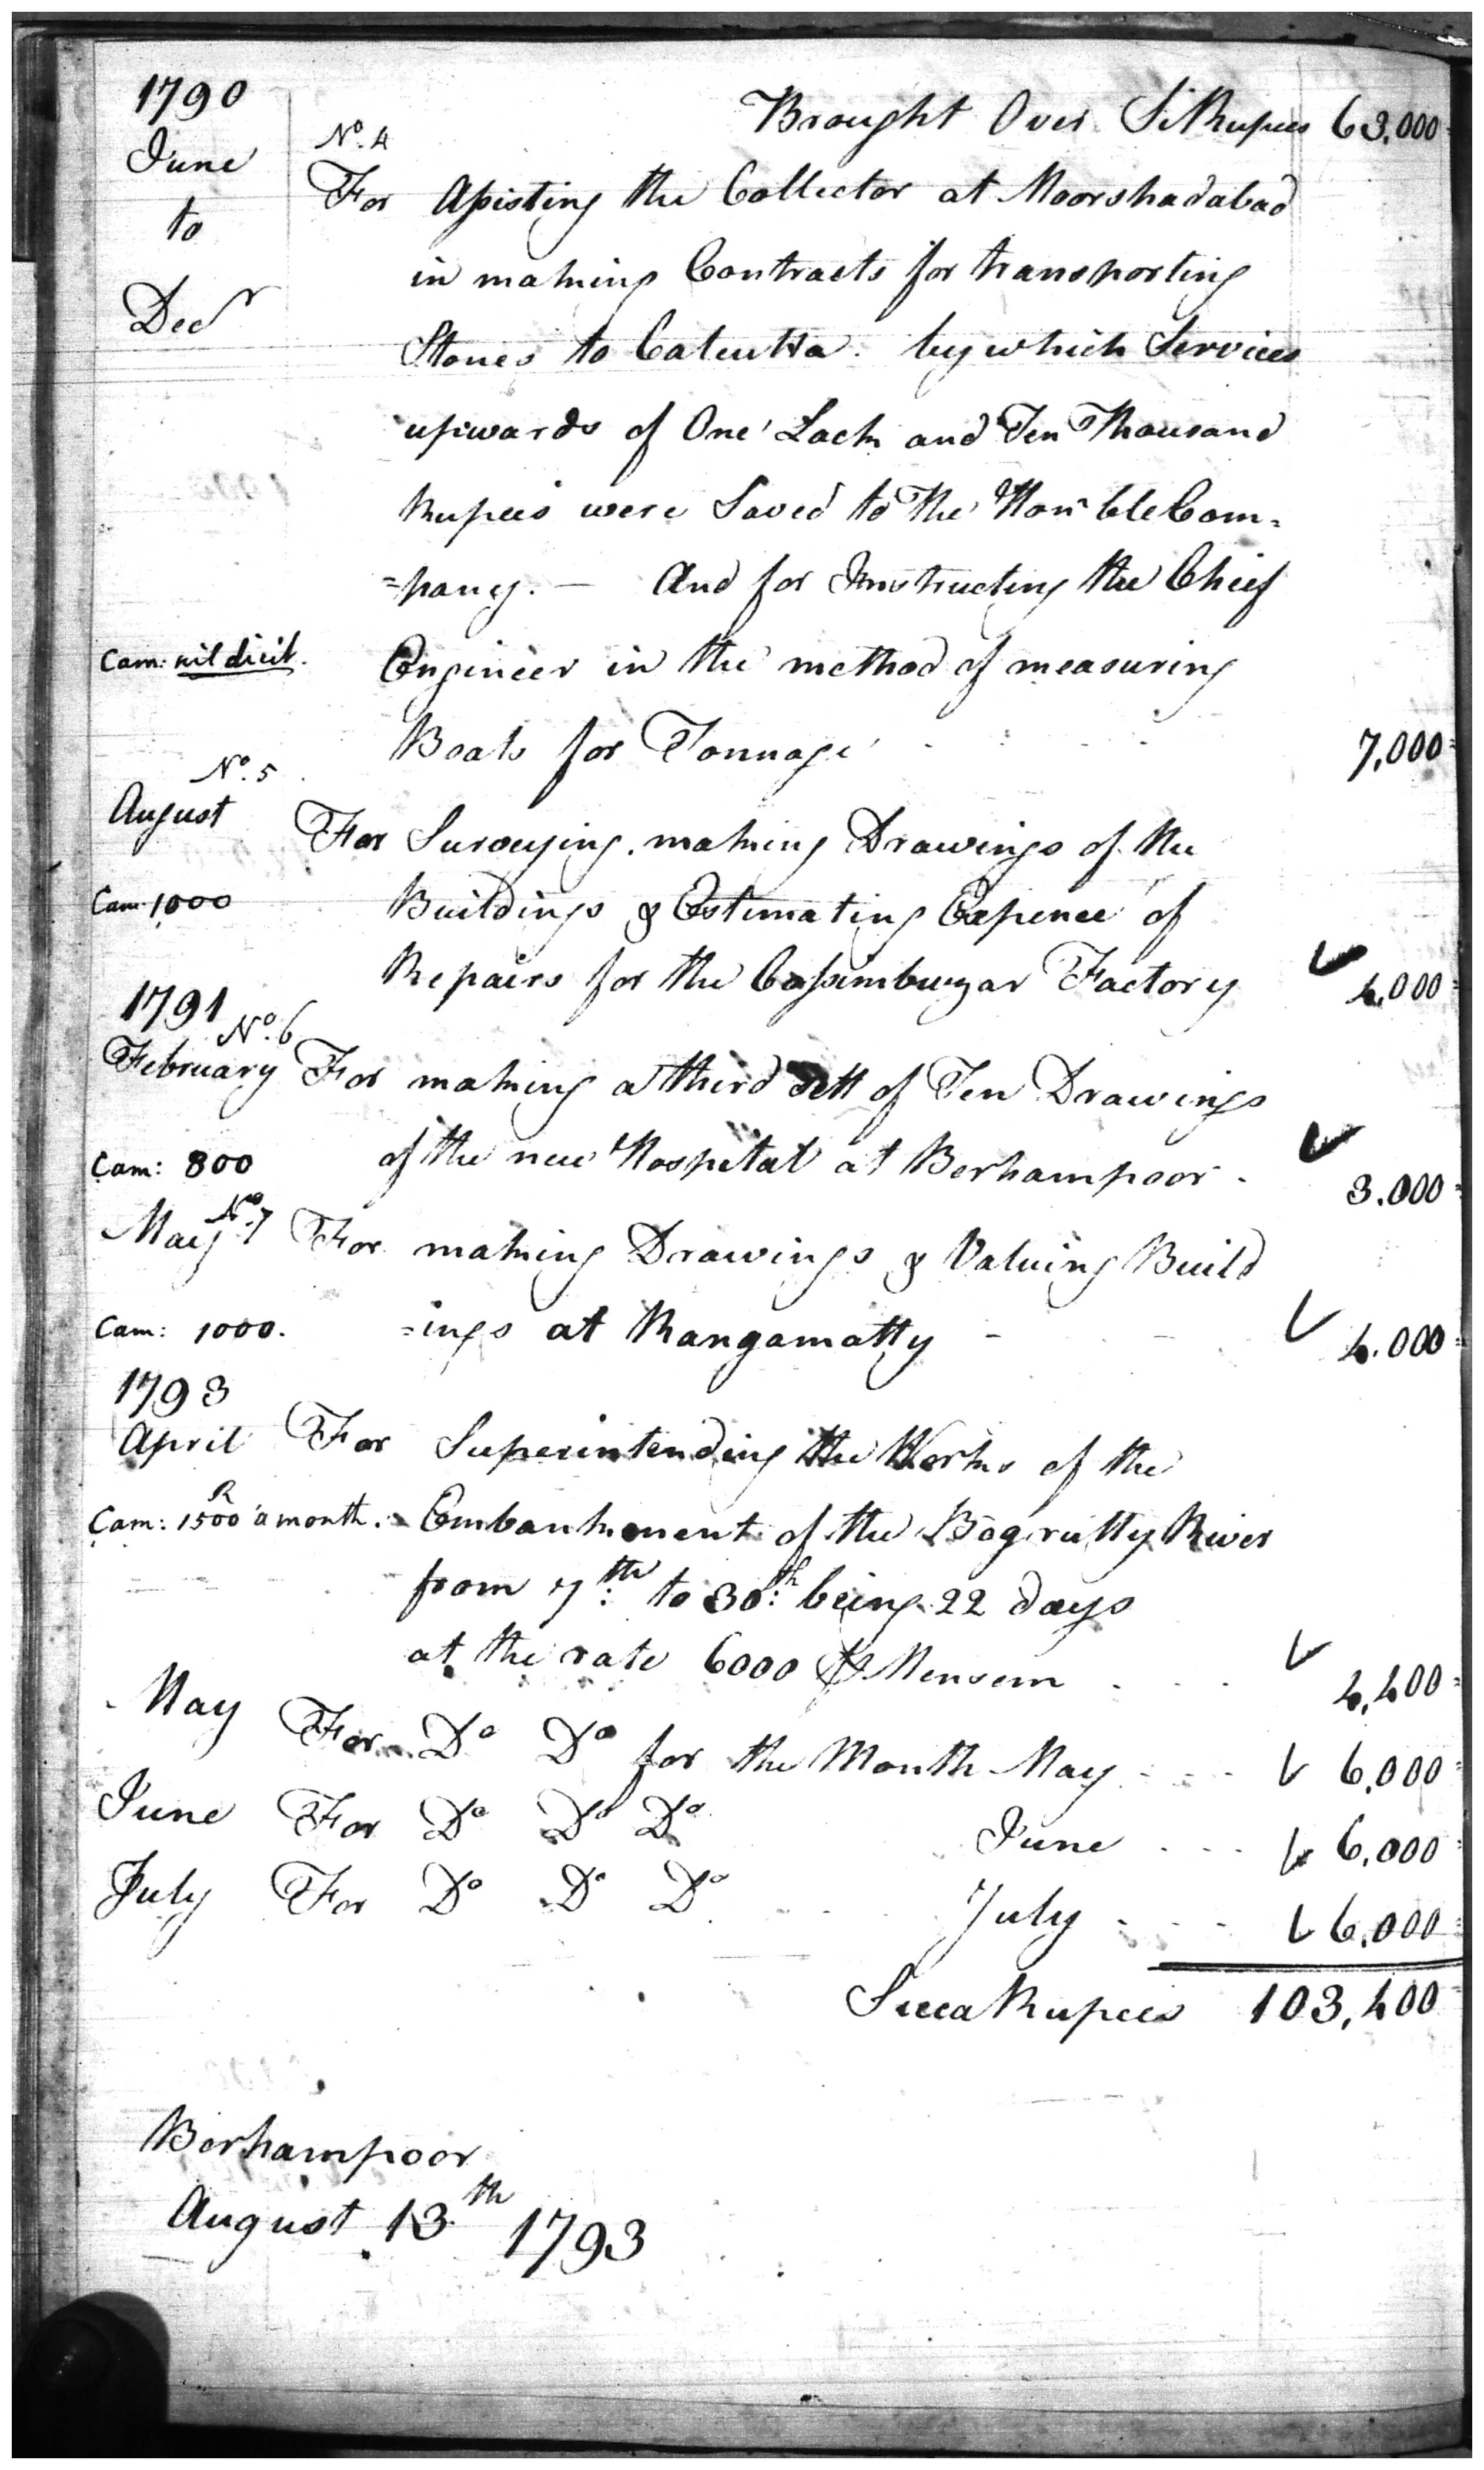 1790
Brought Over Si Rupees 63,000
June
No. 4
For Assisting the Collector at Moorshadabad
to
in making Contracts for transporting
Decr
Stones to Calcutta. by which Services
upwards of One Lack and Ten Thousand
Rupees were Saved to The Honble Com=
=pany. — And for Instructing the Chief
Cam: nil dicit.
Engineer in the method of measuring
Boats for Tonnage
7,000
No. 5
August
For Surveying, making Drawings of the
Cam. 1000
Buildings & Estimating Expence of
Repairs for the Cassimbuzar Factory
4,000
1791
No. 6
February For making a third Sett of Ten Drawings
Cam: 800
of the new Hospital at Berhampoor -
3.000
No. 7
May For making Drawings & Valuing Build
Cam: 1000.
=ings at Rangamatty -
4.000
1793
April For Superintending the Works of the
Cam: 1500 R a month.
Embankment of the Bogrutty River
from 7th to 30th being 22 days
at the rate 6000 ⅌ Mensem
4,400
May For Do Do for the Month May 6,000
June For Do Do Do June 6,000
July For Do Do Do July 6,000
Sicca Rupees 103,400
Berhampoor
August 13th 1793